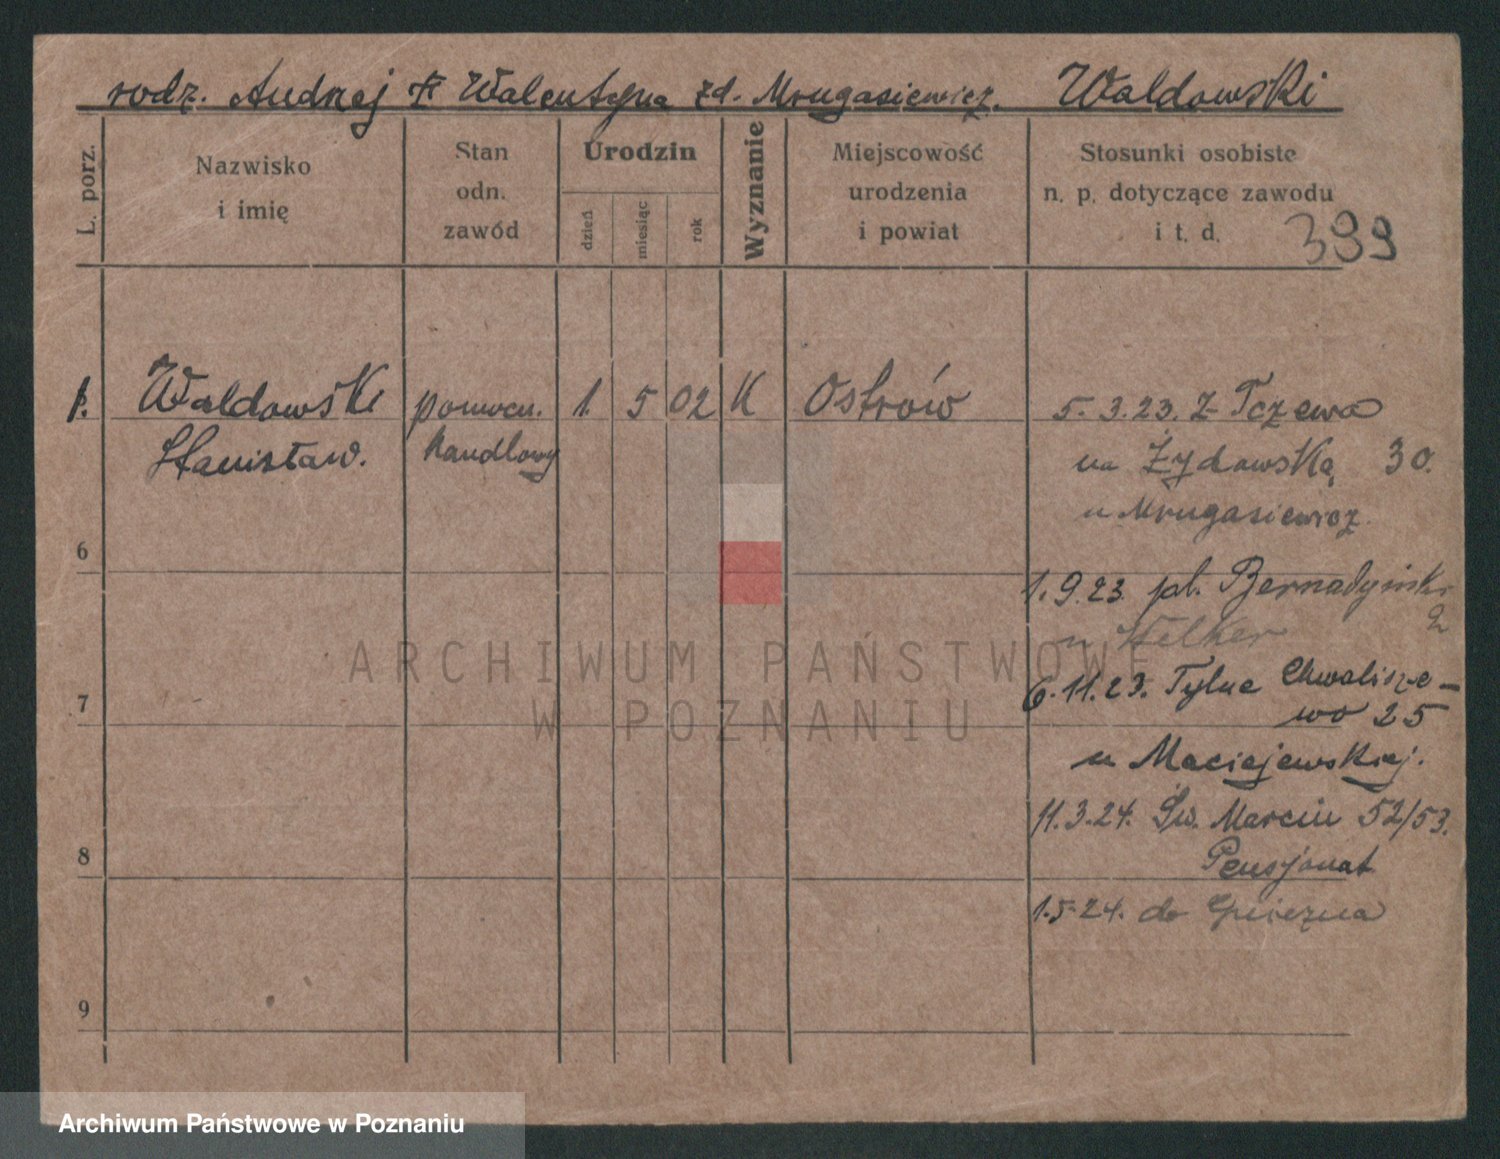 rodz. Andrzej i Walentyna zd. Mrugasiewicz. Waldowski
L. porz.
Nazwisko
i imię
Stan
odn.
zawód
Urodzin
dzień
miesiąc
rok
Wyznanie
Miejscowość
urodzenia
i powiat
Stosunki osobiste
n. p. dotyczące zawodu
i t. d.
399
1. Waldowski pomocn. 1. 5 02 K Ostrów 5. 3. 23. z Tczewa
Stanisław. handlowy na Żydowską 30.
u Mrugasiewicz.
6
1. 9. 23. pl. Bernadyński
2
u Stelker
7
6. 11. 23. Tylne Chwalisze-
wo 25
u Maciejewskiej.
11. 3. 24. Św. Marcin 52/53.
8
Pensjonat
1. 5. 24. do Gniezna
9
ARCHIWUM PAŃSTWOWE
W POZNANIU
Archiwum Państwowe w Poznaniu